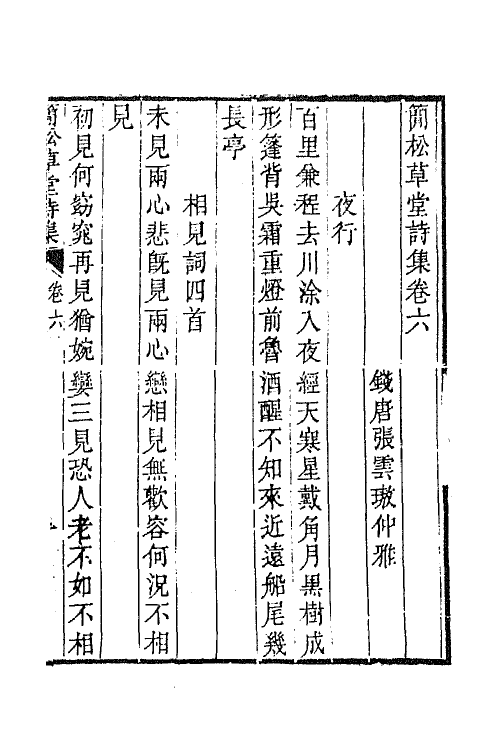 簡松草堂詩集卷六
錢唐張雲璈仲雅
夜行
百里兼程去川涂入夜經天寒星戴角月黑樹成
形篷背吳霜重燈前魯酒醒不知來近遠船尾幾
長亭
相見詞四首
未見兩心悲旣見兩心戀相見無歡容何況不相
見
初見何窈窕再見猶婉孌三見恐人老不如不相
簡松草堂詩集 卷六 一